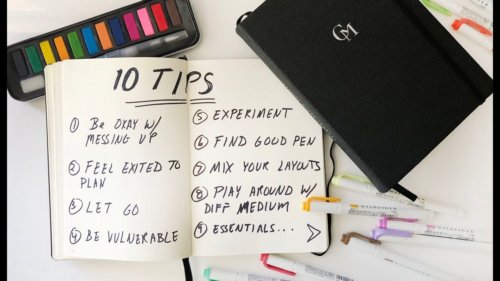 GM
10 TIPS
① Be OKAY W/
MESSING UP
② FEEL EXITED TO
PLAN
③ LET GO
④ BE VULNERABLE
⑤ EXPERIMENT
⑥ FIND GOOD PEN
⑦ MIX YOUR LAYOUTS
⑧ PLAY AROUND W/
DIFF MEDIUM
⑨ ESSENTIALS...